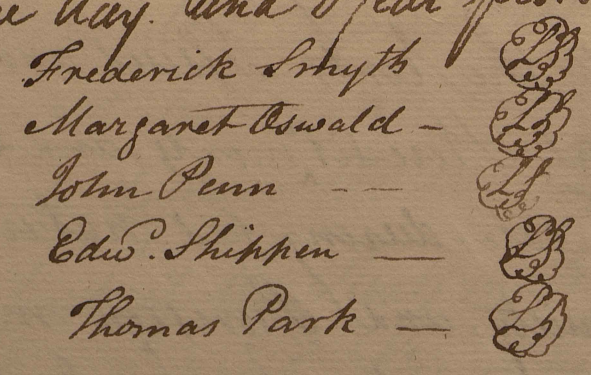 Day. and Year
Frederick Smyth LS
Margaret Oswald - LS
John Penn - - LS
Edwd. Shippen — LS
Thomas Park — LS